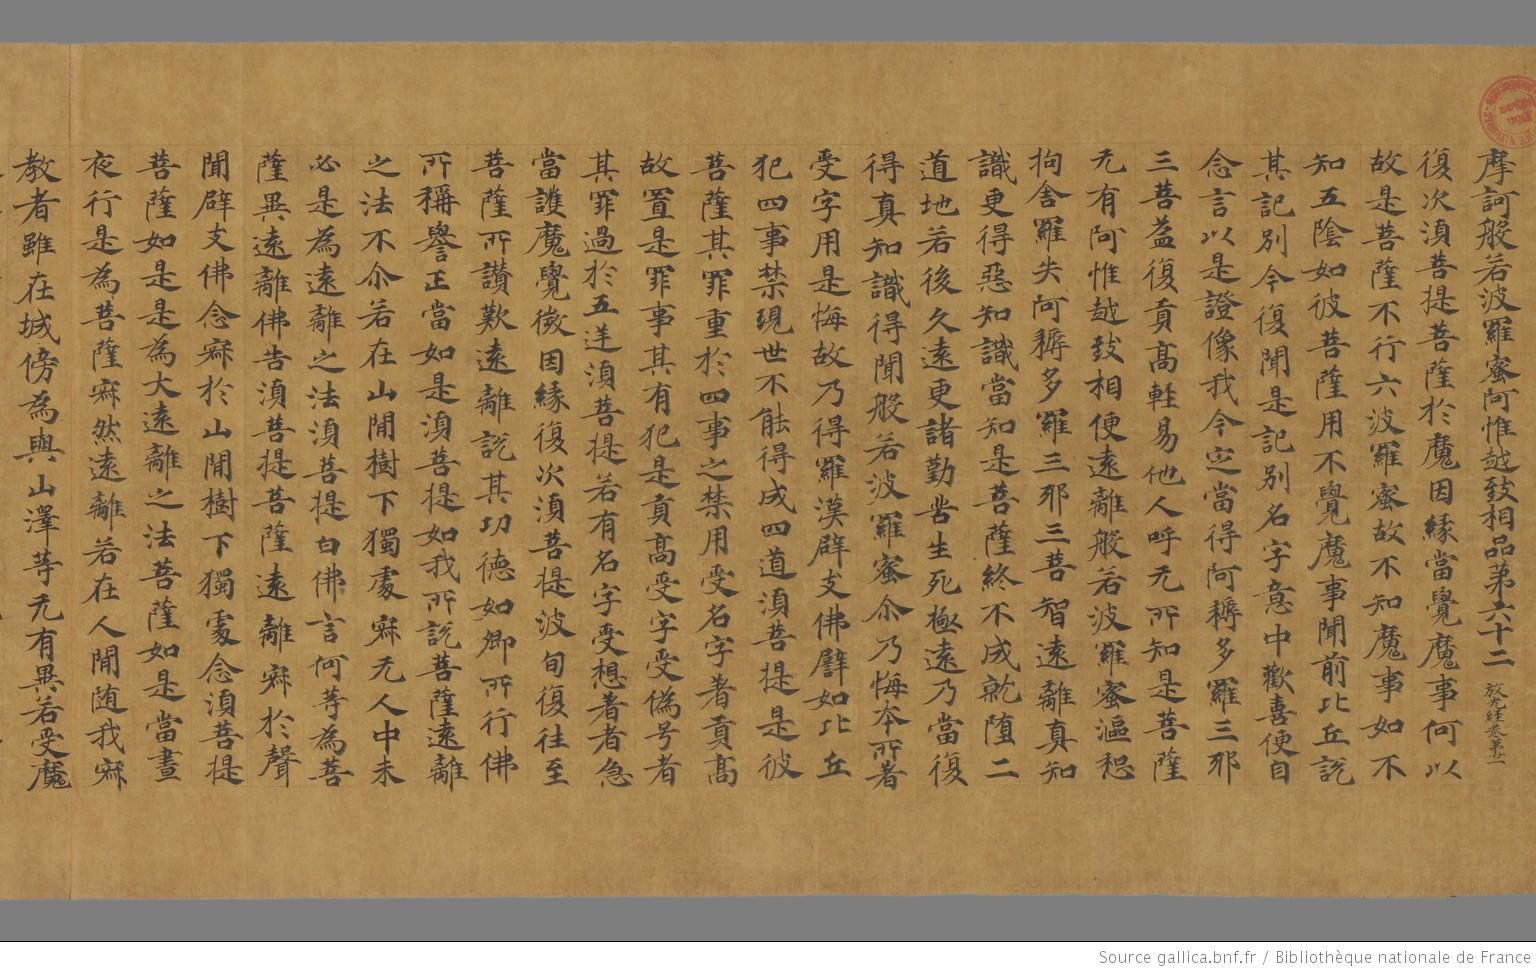 摩訶般若波羅蜜阿惟越致相品第六十二 放光經卷第
復次湏菩提菩薩於魔因緣當覺魔事何以
故是菩薩不行六波羅蜜故不知魔事如不
知五陰如彼菩薩用不覺魔事聞前比丘說
其記別今復聞是記別名字意中歡喜便自
念言以是證像我今定當得阿耨多羅三耶
三菩益復貢高輕易他人呼无所知是菩薩
无有阿惟越致相便遠離般若波羅蜜漚惒
拘舍羅失阿耨多羅三耶三菩智遠離真知
識更得惡知識當知是菩薩終不成就墮二
道地若後久遠更諸勤苦生死極遠乃當復
得真知識得聞般若波羅蜜尒乃悔本所著
受字用是悔故乃得羅漢辟支佛譬如比丘
犯四事禁現世不能得成四道湏菩提是彼
菩薩其罪重於四事之禁用受名字著貢高
故置是罪事其有犯是貢高受字受偽号者
其罪過於五逆湏菩提若有名字受想著者急
當護魔覺微因緣復次湏菩提波旬復往至
菩薩所讚歎遠離說其功德如卿所行佛
所稱譽正當如是湏菩提如我所說菩薩遠離
之法不尒若在山閒樹下獨處寂无人中未
必是為遠離之法湏菩提白佛言何等為菩
薩異遠離佛告湏菩提菩薩遠離寂於聲
聞辟支佛念寂於山閒樹下獨處念湏菩提
菩薩如是是為大遠離之法菩薩如是當晝
夜行是為菩薩寂然遠離若在人閒随我寂
教者雖在城傍為與山澤等无有異若受魔
Source gallica.bnf.fr / Bibliothèque nationale de France